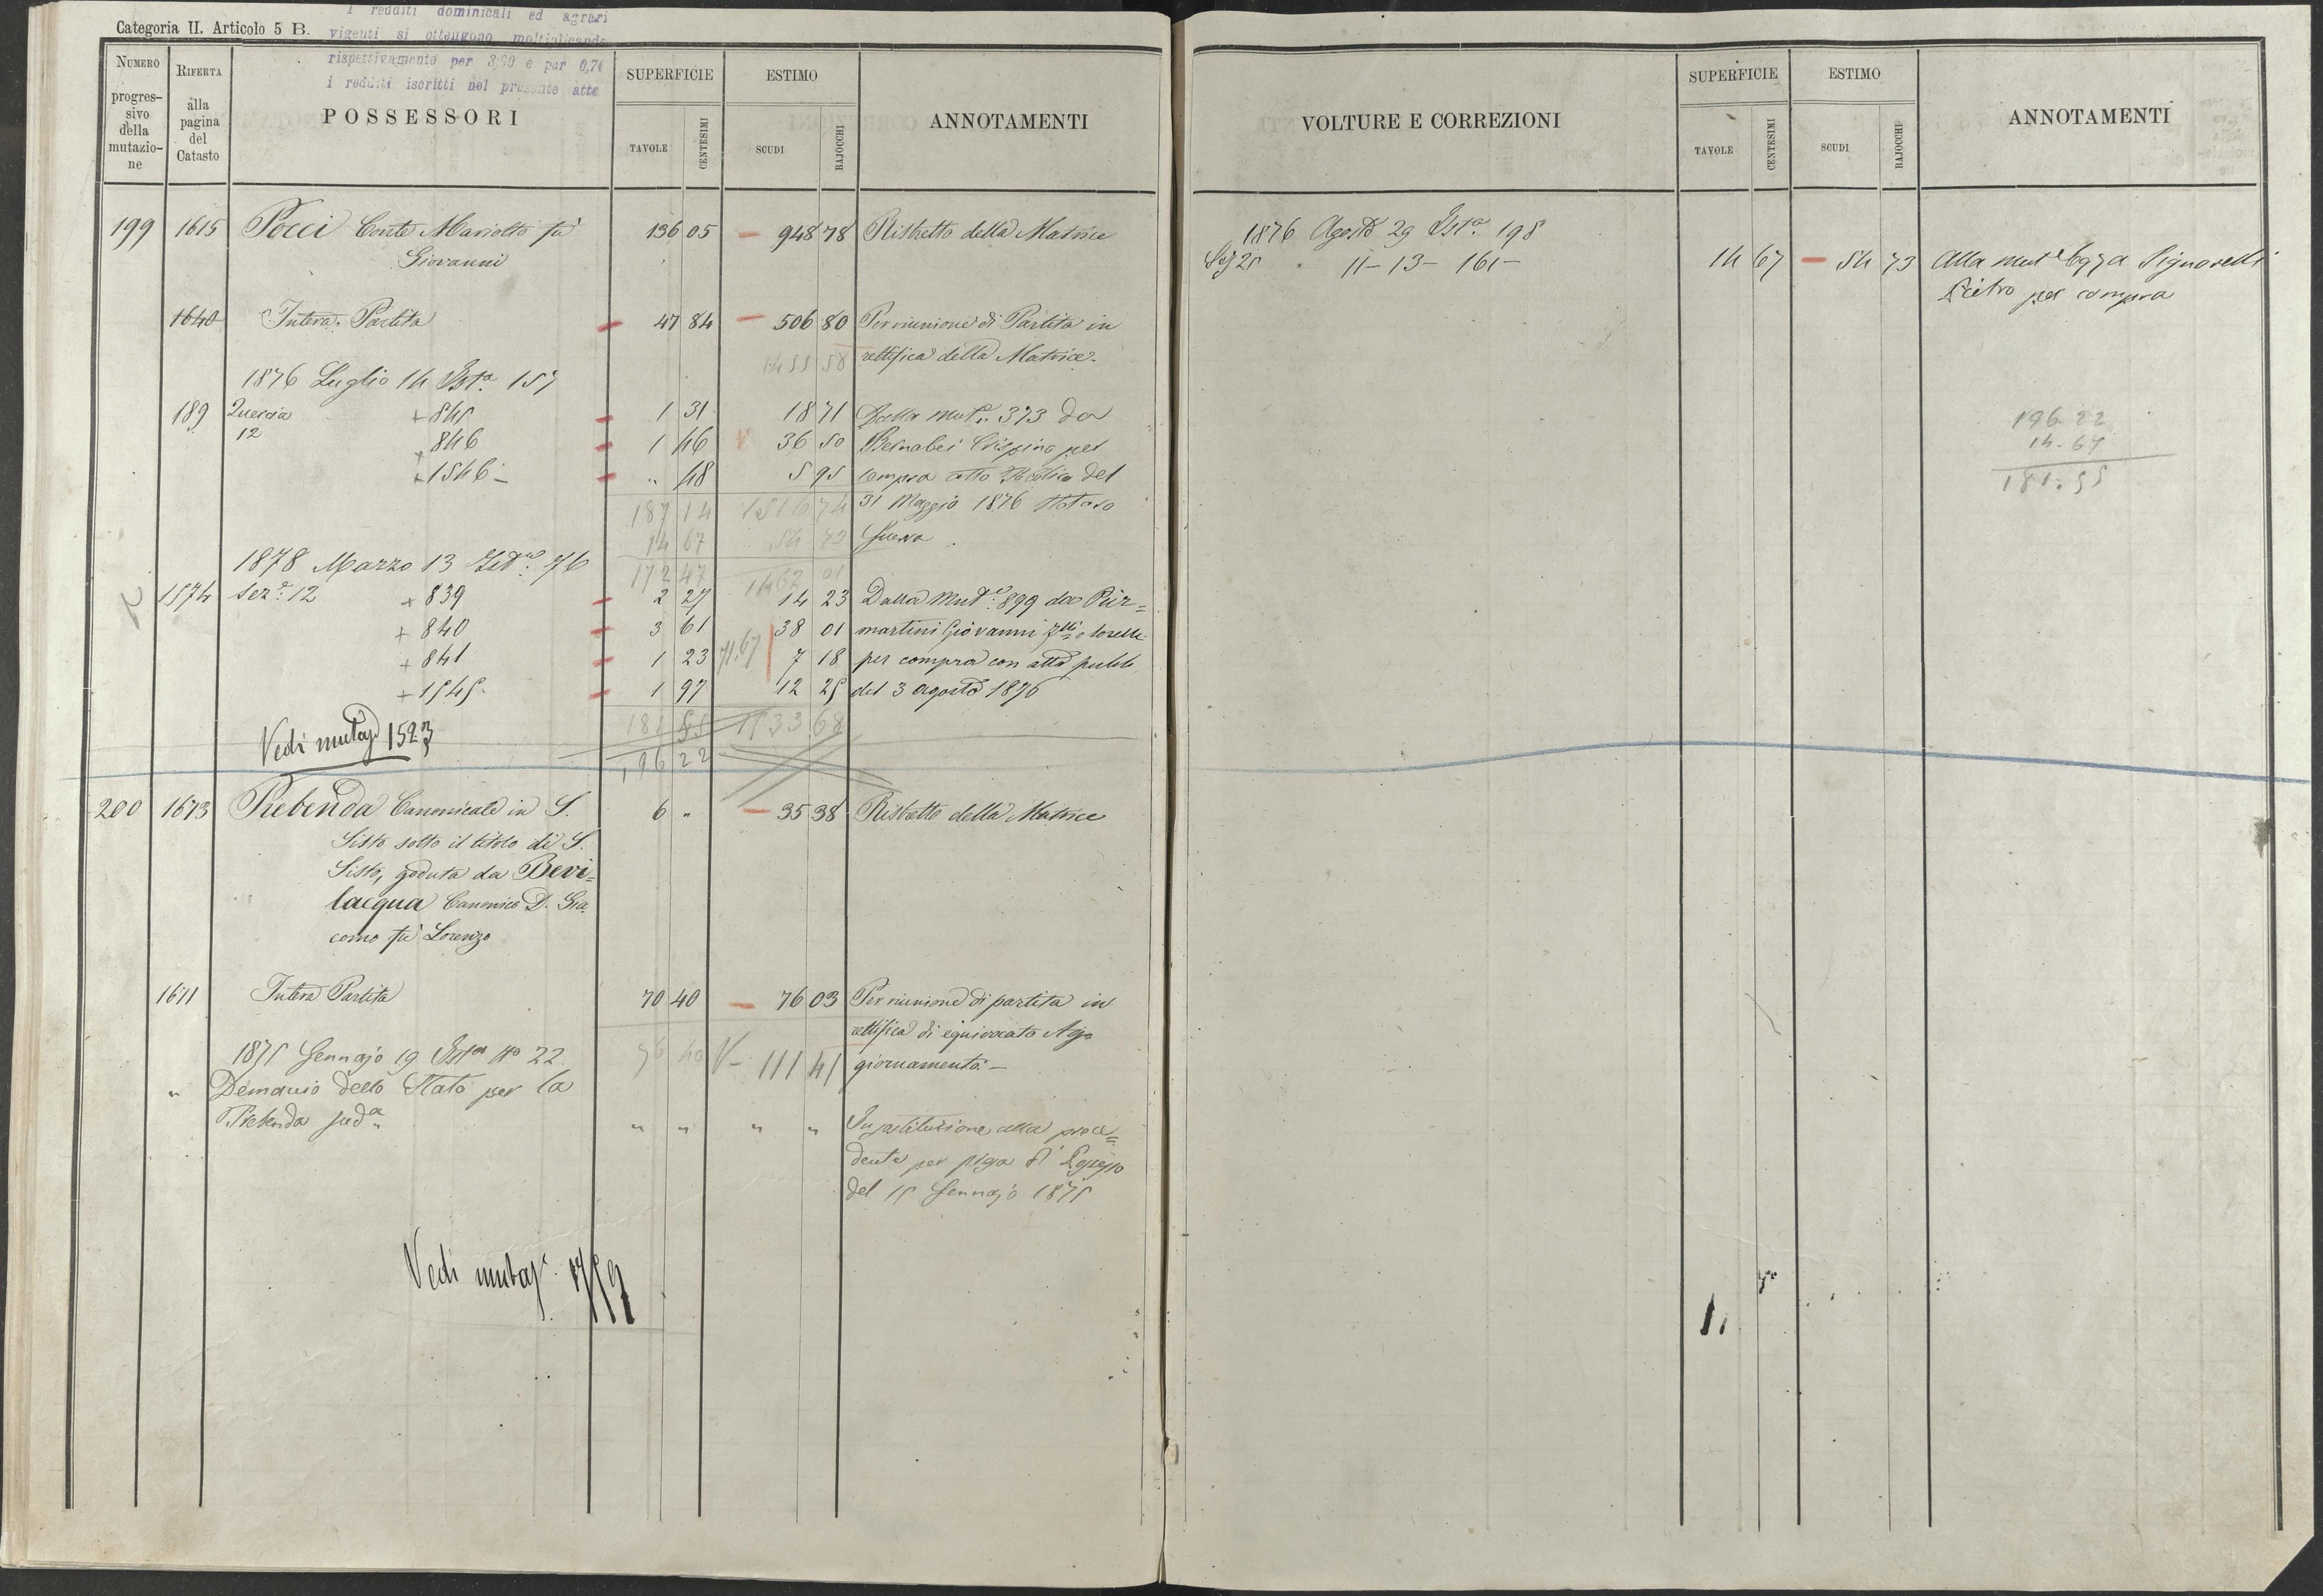 Categoria II. Articolo 5 B.
I redditi dominicali ed agrari
vigenti si ottengono moltiplicando
rispettivamente per 3,90 e per 0,70
i redditi iscritti nel presente atto
NUMERO progressivo della mutazione
RIFERTA alla pagina del Catasto
POSSESSORI
SUPERFICIE TAVOLE CENTESIMI
ESTIMO SCUDI BAJOCCHI
ANNOTAMENTI
199 1615 Pocci Conte Mariotto fù 136 05 948 78 Ristretto della Matrice
Giovanni
1640 Intera Partita 47 84 506 80 Per riunione di Partita in
1455 58 rettifica della Matrice.
1876 Luglio 14 Ista 157
189 Quercia + 845 1 31 18 71 Dalla mut. 373 da
12 + 846 1 46 36 50 Bernabei Crispino per
+ 1546 - " 48 5 95 compra atto Pubblico del
187 14 1516 74 31 Maggio 1876 Notaro
14 67 54 73 Guerra
1878 Marzo 13 76
172 47 1462 01
1574 Sez. 12 + 839 2 27 14 23 Dalla Mut. 899 da Pier=
+ 840 3 61 38 01 martini Giovanni flli e sorelle
+ 841 1 23 71.67 7 18 per compra con atto pubb
+ 1545. 1 97 12 25 del 3 agosto 1876
181 55 1533 68
Vedi mutaz 1523
196 22
200 1673 Prebenda Canonicale in S. 6 " 35 38 Ristretto della Matrice
Sisto sotto il titolo di S.
Sisto, goduta da Bevi=
lacqua Canonico D. Gia
como fù Lorenzo
1671 Intera Partita 70 40 76 03 Per riunione di partita in
rettifica di equivocato Ag
1875 Gennajo 19 Ista No 22 76 40 111 41 giornamento.-
" Demanio dello Stato per la
Prebenda suda " " " " In sostituzione alla prece=
dente per presa di Possesso
del 15 Gennajo 1875
Vedi mutaz. 1759
VOLTURE E CORREZIONI
SUPERFICIE TAVOLE CENTESIMI
ESTIMO SCUDI BAJOCCHI
ANNOTAMENTI
1876 Agosto 29 Ista. 198
Sez 25 11-13-161- 14 67 54 73 Alla mut. 697 a Signorelli
Pietro per compra
196.22
14.67
181.55